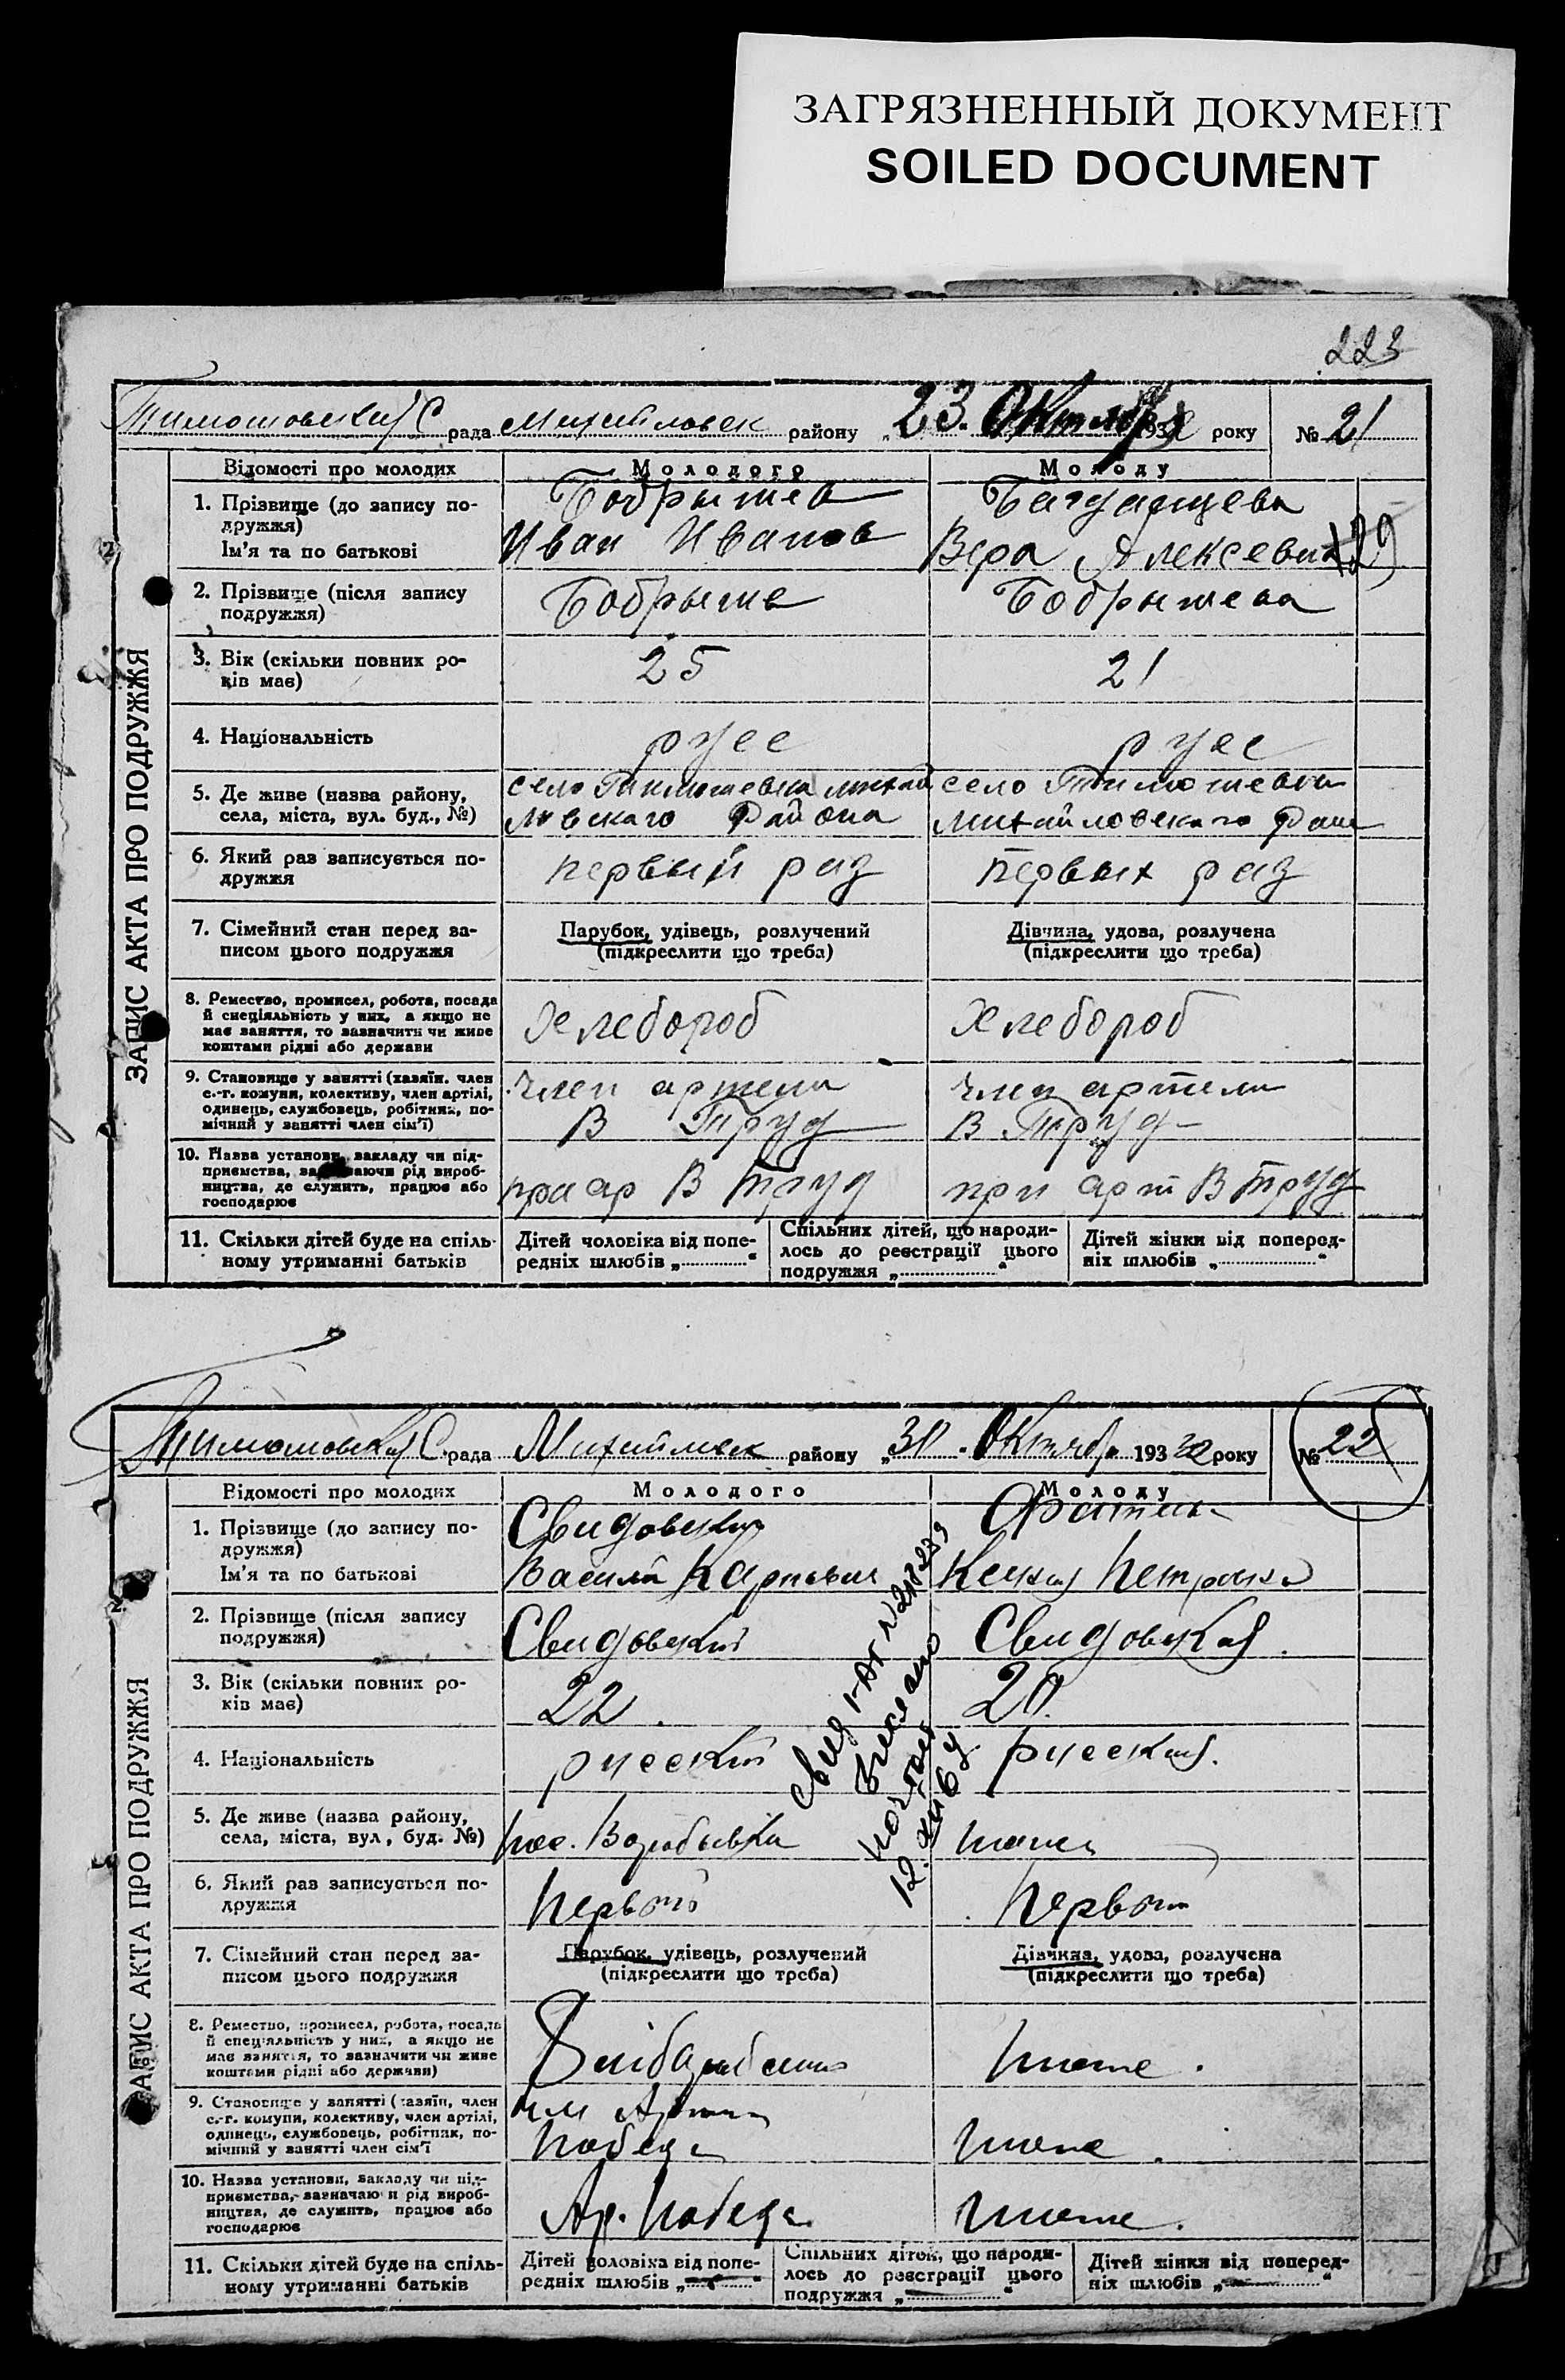 ЗАГРЯЗНЕННЫЙ ДОКУМЕНТ
SOILED DOCUMENT
223
ЗАПИС АКТА ПРО ПОДРУЖЖЯ
рада Михайловск району „23. Октября 193 року № 21
Відомості про молодих Молодого Молоду
1. Прізвище (до запису подружжя) Бобрышев
Ім'я та по батькові Иван Иванов Вера Алексевна
2. Прізвище (після запису подружжя) Бобрыше Бобрышева
3. Вік (скільки повних років має) 25 21
4. Національність русс русс
5. Де живе (назва району, села, міста, вул. буд., №) село Тимошевка Михай село Тимошевки
ловскаго Района Михайловскаго
6. Який раз записується подружжя первый раз первых раз
7. Сімейний стан перед записом цього подружжя Парубок, удівець, розлучений (підкреслити що треба) Дівчина, удова, розлучена (підкреслити що треба)
8. Ремество, промисел, робота, посада й спеціяльність у них, а якщо не має заняття, то зазначити чи живе коштами рідні або держави Хлебороб Хлебороб
9. Становище у занятті (хазяїн, член с.-г. комуни, колективу, член артілі, одинець, службовець, робітник, помічний у занятті член сім'ї) Член артели член артели
В Труд В Труд
10. Назва установи, закладу чи підприємства, рід виробництва, де служить, працює або господарює при ар В Труд при арт В Труд
11. Скільки дітей буде на спільному утриманні батьків Дітей чоловіка від попередніх шлюбів „ “ Спільних дітей, що народилось до реєстрації цього подружжя „ “ Дітей жінки від попередніх шлюбів „ “
ЗАПИС АКТА ПРО ПОДРУЖЖЯ
рада району „30. Октября 1932 року № 22
Відомості про молодих Молодого Молоду
1. Прізвище (до запису подружжя) Свидовский
Ім'я та по батькові Василий Карпович
2. Прізвище (після запису подружжя) Свидовский Свидовская
3. Вік (скільки повних років має) 22. 20.
4. Національність русский русская.
5. Де живе (назва району, села, міста, вул, буд. №) пос. Воробьевка
6. Який раз записується подружжя первый первый
7. Сімейний стан перед записом цього подружжя Парубок, удівець, розлучений (підкреслити що треба) Дівчина, удова, розлучена (підкреслити що треба)
8. Ремество, промисел, робота, посада й спеціяльність у них, а якщо не має заняття, то зазначити чи живе коштами рідні або держави
9. Становище у занятті (хазяїн, член с.-г. комуни, колективу, член артілі, одинець, службовець, робітник, помічний у занятті член сім'ї
Победа
10. Назва установи, закладу чи підприємства, зазначаючи рід виробництва, де служить, працює або господарює Ар. Победа
11. Скільки дітей буде на спільному утриманні батьків Дітей чоловіка від попередніх шлюбів „ “ Спільних дітей, що народилось до реєстрації цього подружжя „ “ Дітей жінки від попередніх шлюбів „ “